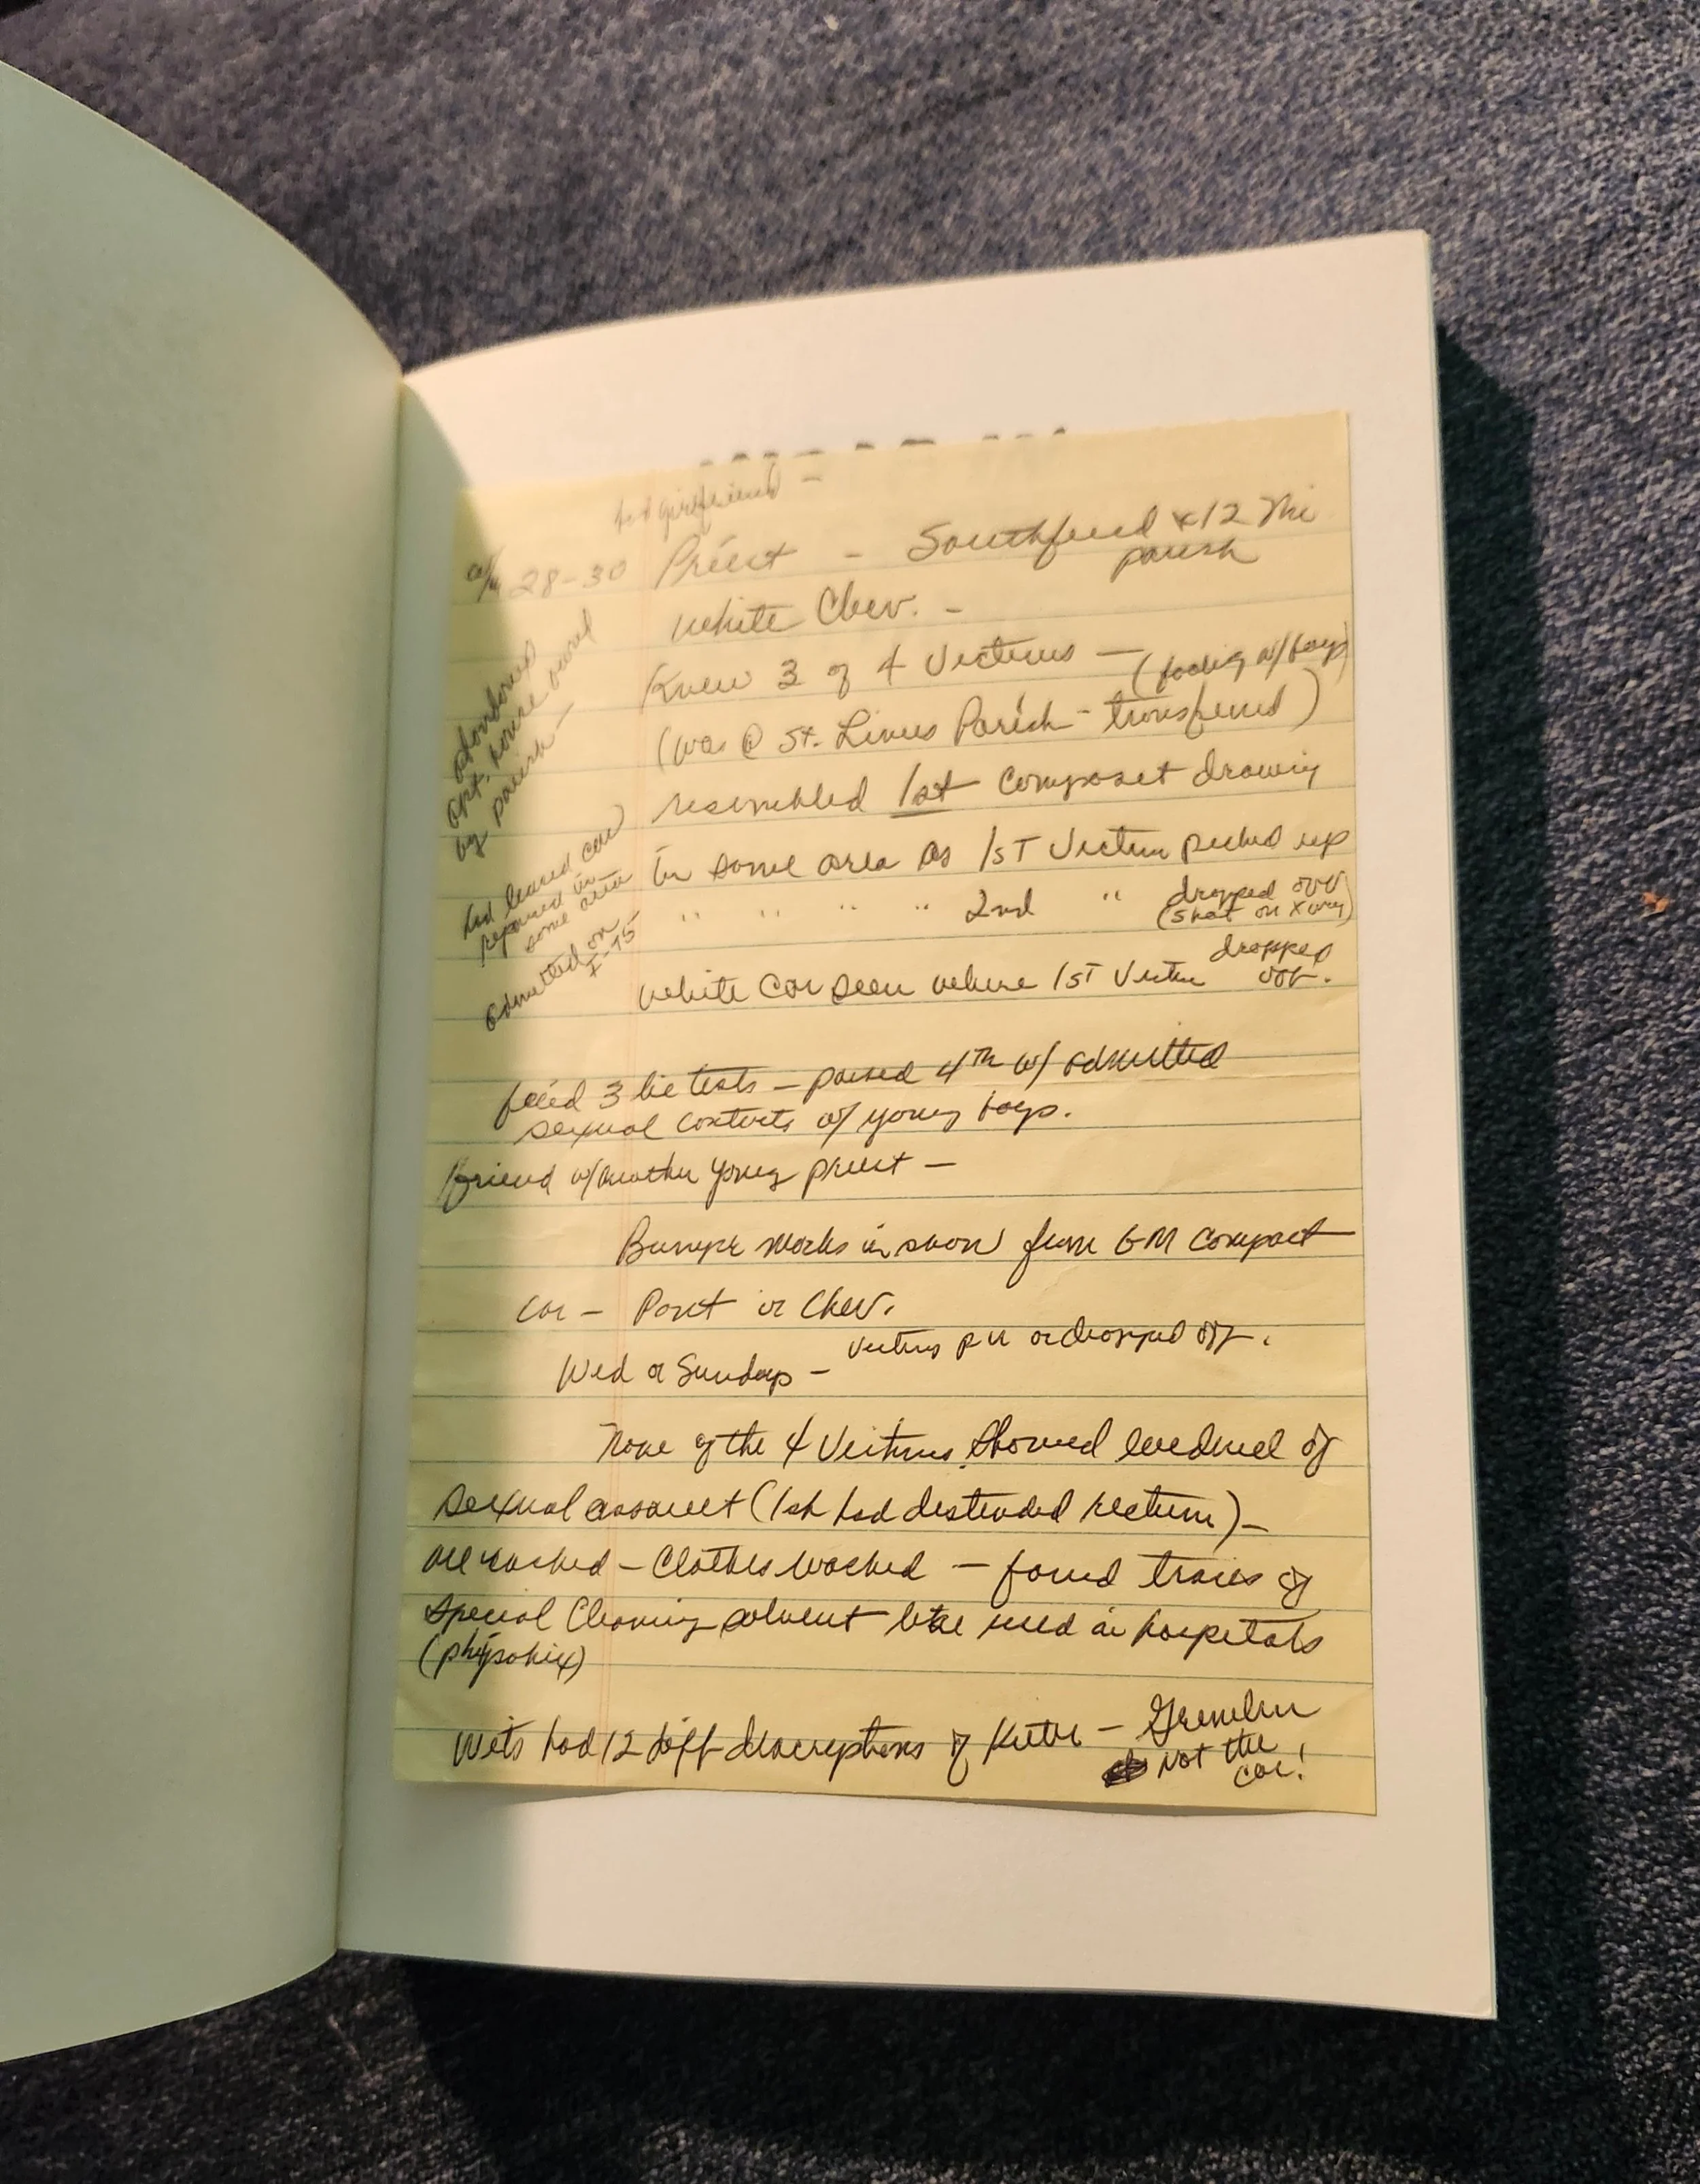 girlfriend -
28-30 Priest - Southfield & 12 Mi
parish
White Chev. -
Knew 3 of 4 Victims - ( w/boys)
(was @ St. Linus Parish - transferred)
resembled 1st composet drawing
In same area as 1ST Victim picked up
" " " " 2nd " dropped off
(shot on X way)
White Car seen where 1ST Victim dropped
off.
failed 3 lie tests - passed 4th w/ admitted
sexual contacts w/ young boys.
friend w/another young priest -
Bumper marks in snow from GM compact
car - Pont or Chev.
Wed or Sundays - Victims pu or dropped off.
None of the 4 Victims showed evidence of
sexual assault (1st had distended rectum) -
all washed - Clothes washed - found traces of
special Cleaning solvent like used in hospitals
(physohix)
Wits had 12 diff descriptions of Killer - Gremlin
Not the
car!
abandoned
apt. house owned
by parish -
had leased car
repaired in
same area
admitted on
I-75